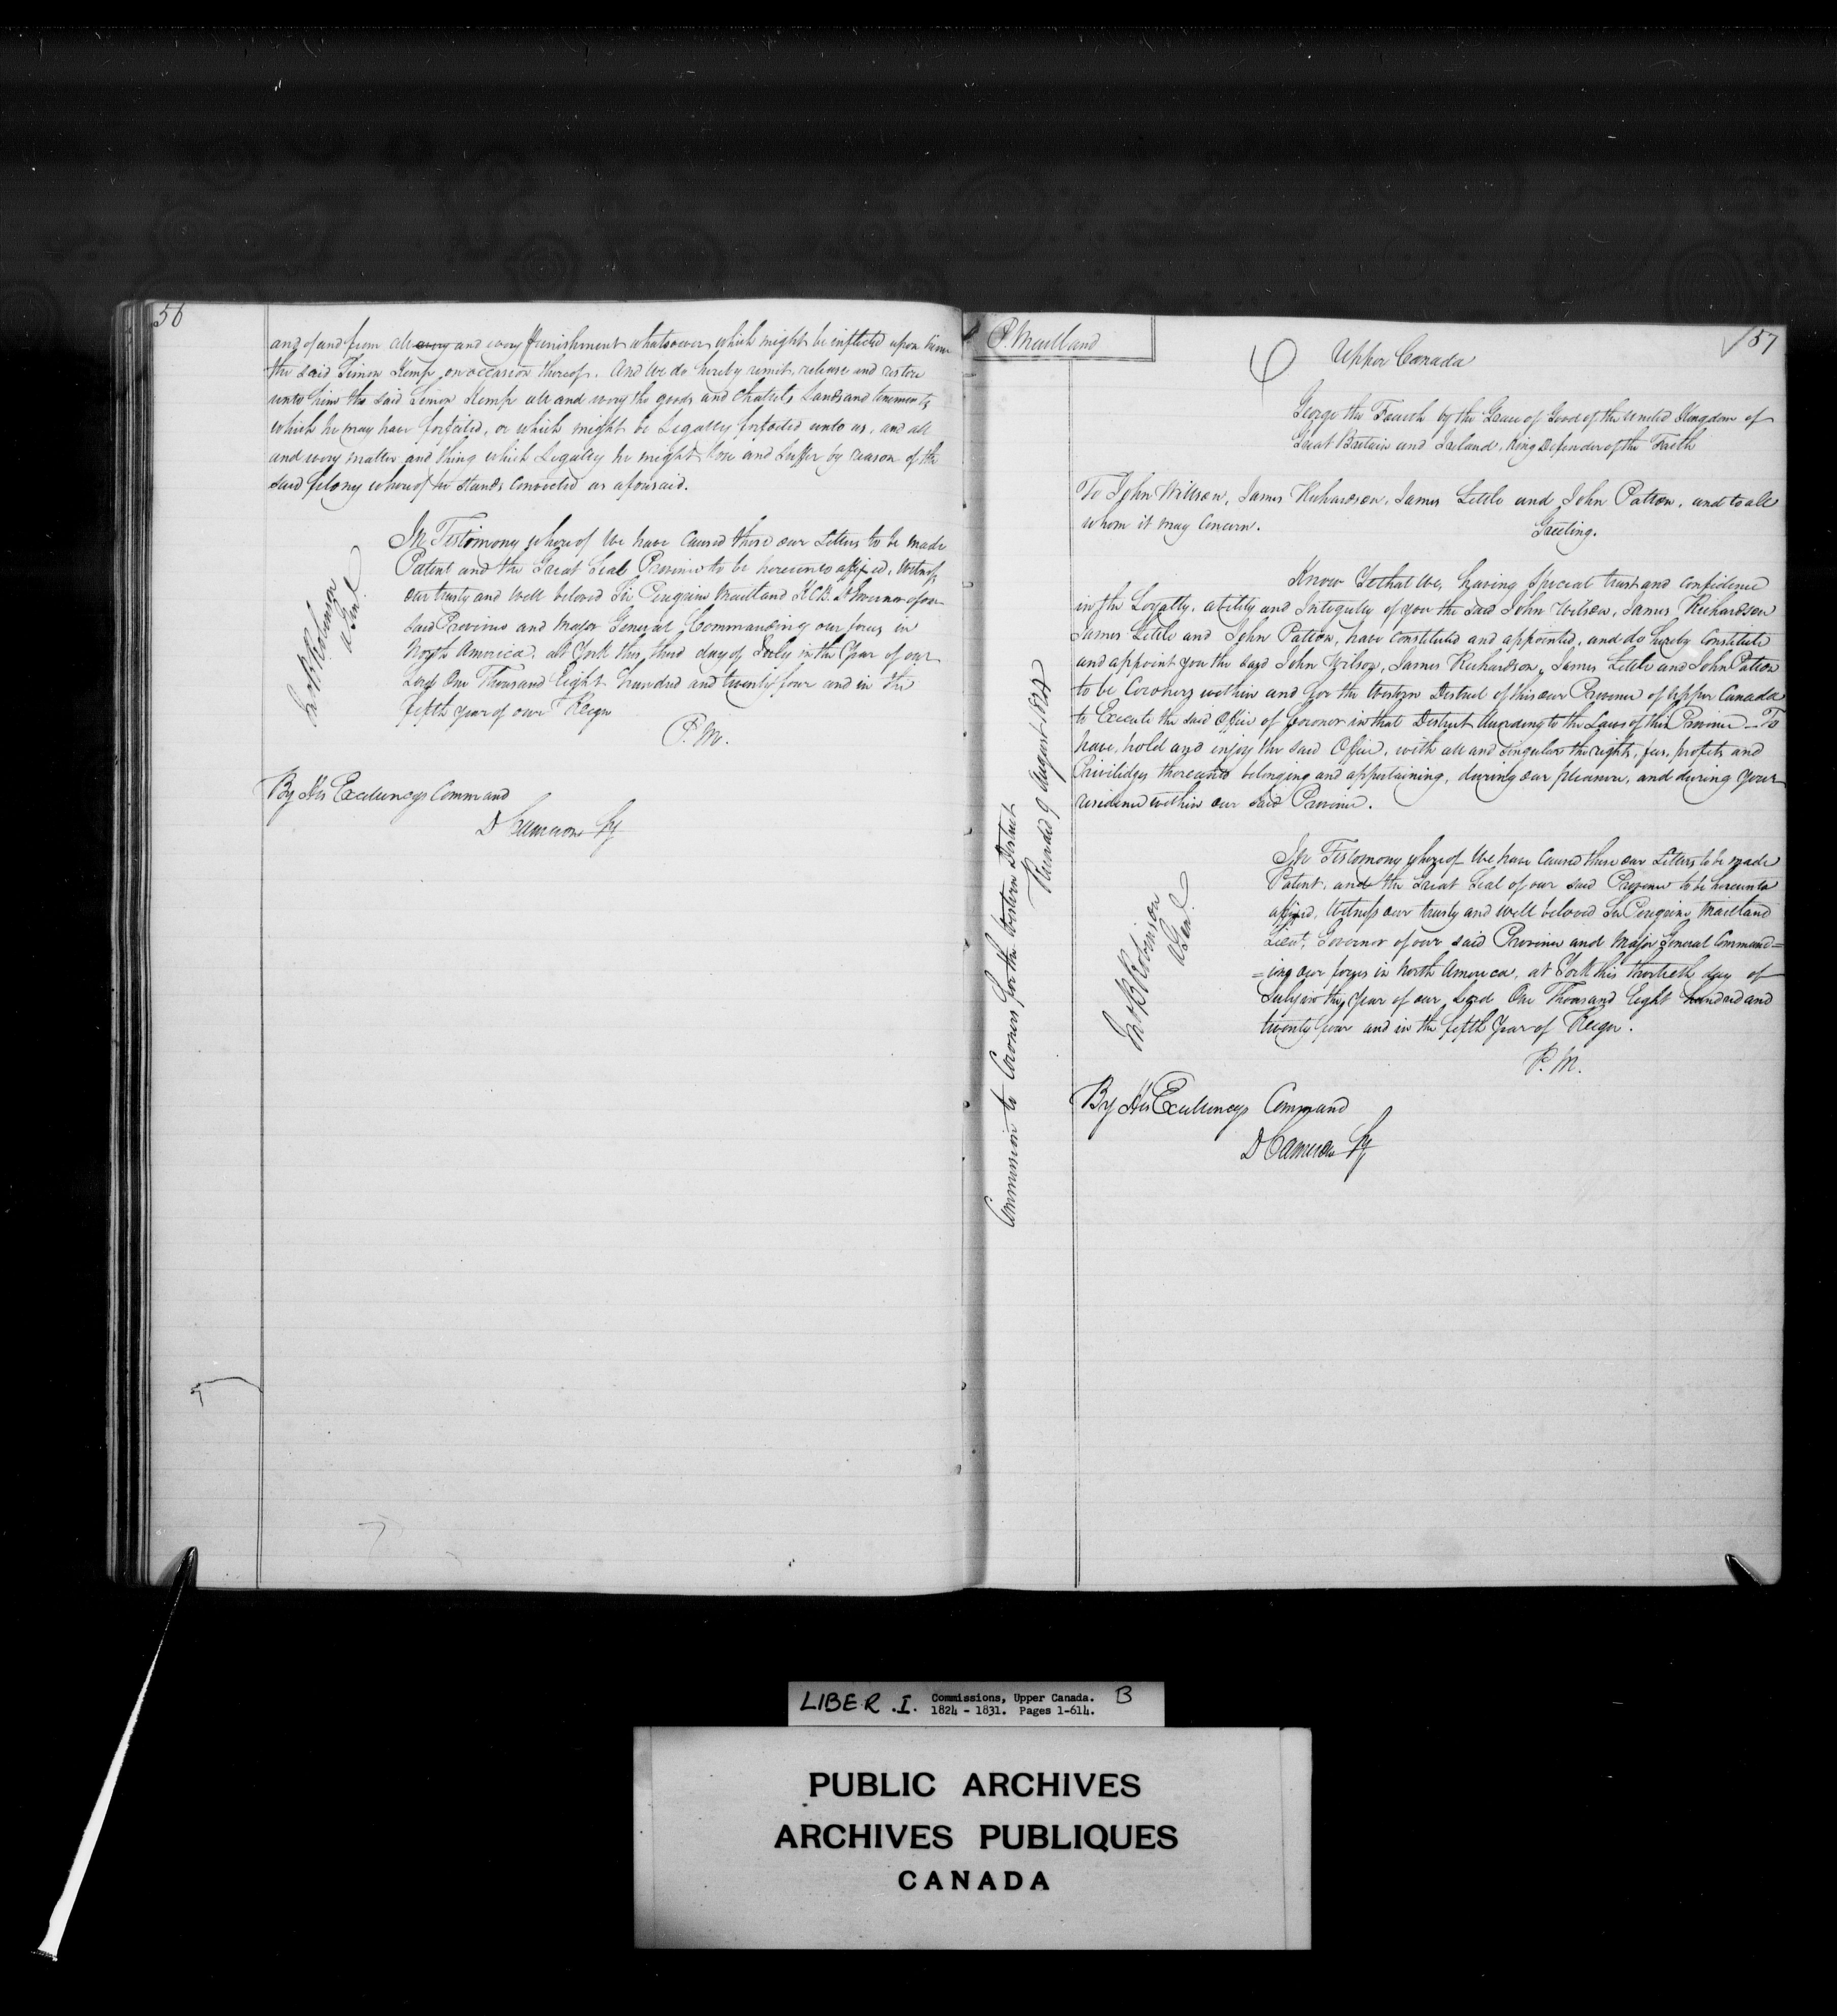 56
and of and from all every and every Punishment whatsoever which might be inflicted upon him
the said Simon Kemp on occasion thereof. And we do hereby remit, release and restore
unto him the said Simon Kemp all and every the goods and Chattels Lands and tenements
which he may have forfeited, or which might be Legally forfeited unto us, and all
and every matter and thing which Legally he might lose and Suffer by reason of the
said felony whereof he stands Convicted as aforesaid.
In Testimony whereof We have Caused these our Letters to be made
Patent and the Great Seal Province to be hereunto affixed, Witness
our trusty and Well beloved Sir Peregrine Maitland K.C.B. Lt Governor of our
said Province and Major General Commanding our forces in
North America. at York this third day of July in the Year of our
Lord One Thousand Eight hundred and twenty four and in the
fifth year of our Reign
P. M.
Jno B Robinson
a Genl
By His Excellencys Command
D Cameron Sy
P. Maitland
157
Upper Canada
George the Fourth by the Grace of Good of the United Kingdom of
Great Britain and Ireland, King Defender of the Faith
To John Willson, James Richardson, James Little and John Patton, and to all
whom it may Concern.
Greeting.
Know Ye that We, having Special trust and Confidence
in the Loyalty, ability and Integrity of you the said John Wilson, James Richardson
James Little and John Patton, have Constituted and appointed, and do hereby Constitute
and appoint you the said John Wilson, James Richardson, James Little and John Patton
to be Coroners within and for the Western District of this our Province of Upper Canada
to Execute the said Office of Coroner in that District According to the Laws of this Province — To
have, hold and enjoy the said Office, with all and Singular the rights, fees, profits and
Priviledges thereunto belonging and appertaining, during our pleasure, and during your
residence within our said Province.
In Testimony whereof We have Caused these our Letters to be made
Patent, and the Great Seal of our said Province to be hereunto
affixed, Witness our trusty and well beloved Sir Peregrine Maitland
Lieut. Governor of our said Province and Major General Command=
=ing our forces in North America, at York this thirtieth day of
July in the Year of our Lord One Thousand Eight hundred and
twenty four and in the fifth Year of Reign.
P. M.
Jno B Robinson
a Genl
Commission to Coroners for the Western District
Recorded 9 August 1824
By His Excellencys Command
D Cameron Sy
LIBER .I. Commissions, Upper Canada. B
1824 - 1831. Pages 1-614.
PUBLIC ARCHIVES
ARCHIVES PUBLIQUES
CANADA